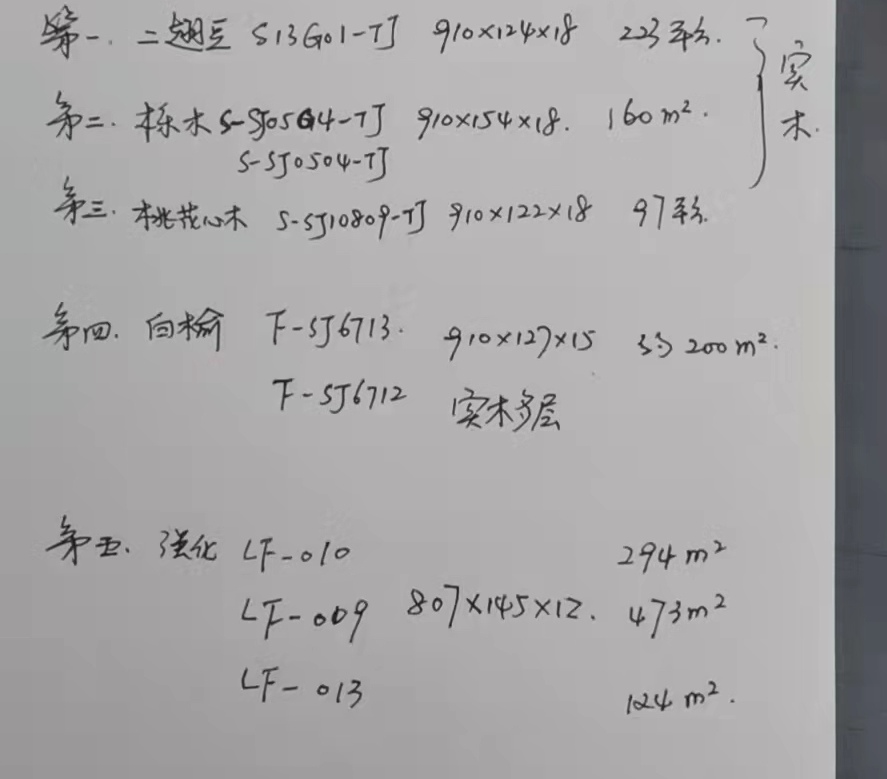 第一. 二翅豆 S13G01-TJ 910×124×18 223平方.
第二. 栎木 S-SJ0504-TJ 910×154×18. 160m².
S-SJ0504-TJ
实木.
第三. 桃花心木 S-SJ10809-TJ 910×122×18 97平方.
第四. 白榆 F-SJ6713. 910×127×15 约200m².
F-SJ6712 实木多层
第五. 强化 LF-010 294m²
LF-009 807×145×12. 473m²
LF-013 124m².